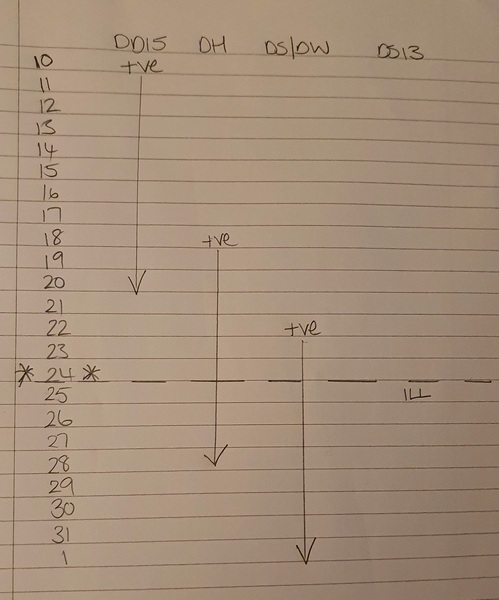 DD15 DH DS/DW DS13
10 +ve
11
12
13
14
15
16
17
18 +ve
19
20
21
22 +ve
23
* 24 *
25
26
27
28
29
30
31
1